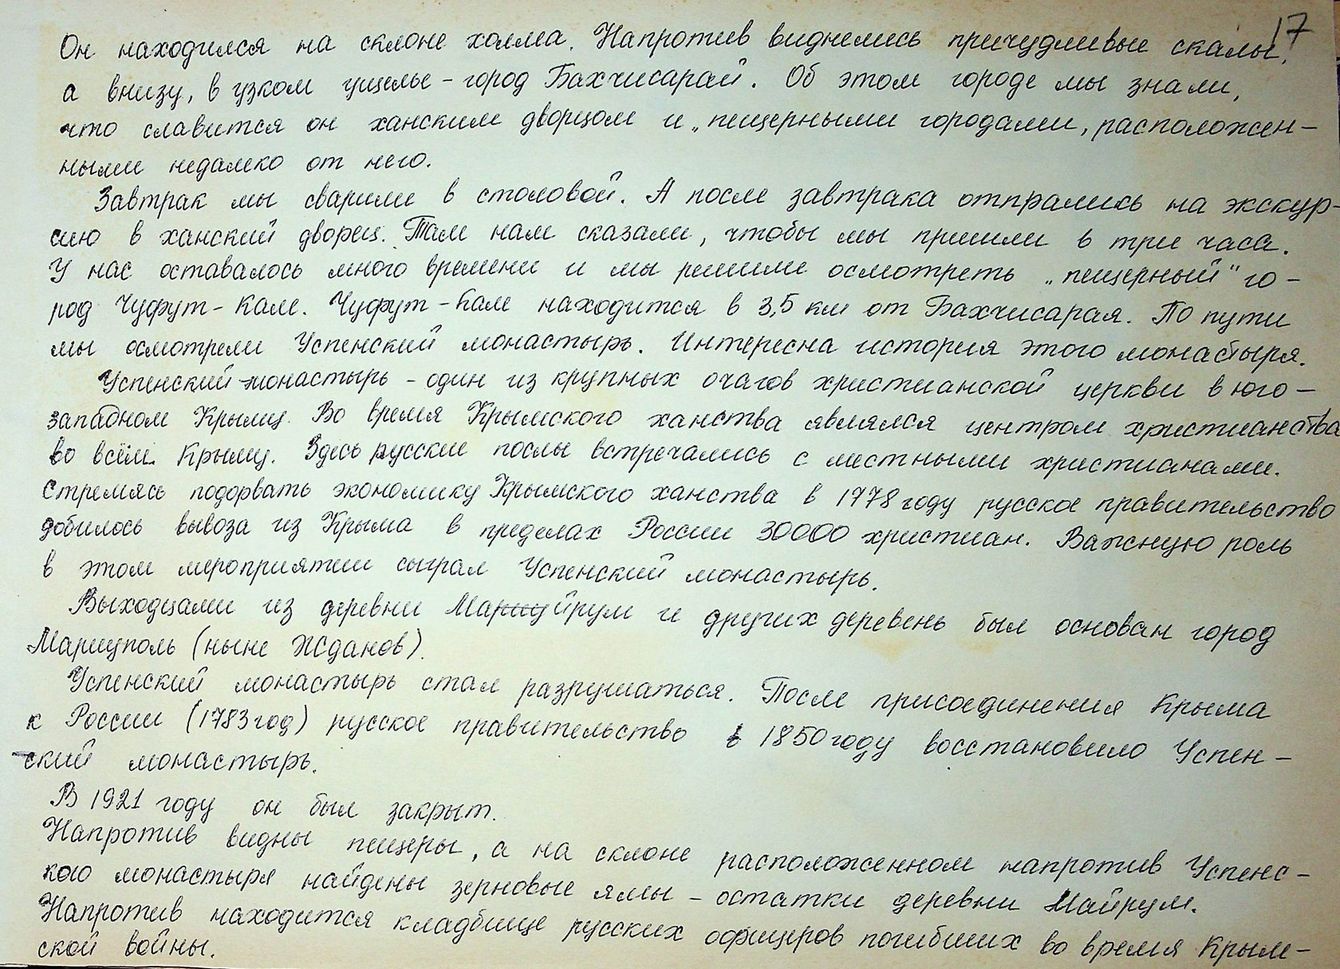 17
Он находился на склоне холма. Напротив виднелись причудливые скалы,
а внизу, в узком ущелье - город Бахчисарай. Об этом городе мы знали,
что славится он ханским дворцом и „пещерными городами, расположен-
ными недалеко от него.
Завтрак мы сварили в столовой. А после завтрака отпрались на экскур-
сию в ханский дворец. Там нам сказали, чтобы мы пришли в три часа.
У нас оставалось много времени и мы решили осмотреть „пещерный" го-
род Чуфут-Кале. Чуфут-Кале находится в 3,5 км от Бахчисарая. По пути
мы осмотрели Успенский монастырь. Интересна история этого монастыря.
Успенский монастырь - один из крупных очагов христианской церкви в юго-
западном Крыму. Во время Крымского ханства являлся центром христианства
во всём Крыму. Здесь русские послы встречались с местными христианами.
Стремясь подорвать экономику Крымского ханства в 1778 году русское правительство
добилось вывоза из Крыма в пределах России 30000 христиан. Важную роль
в этом мероприятии сыграл Успенский монастырь.
Выходцами из деревни Майрум и других деревень был основан город
Мариуполь (ныне Жданов).
Успенский монастырь стал разрушаться. После присоединения Крыма
к России (1783 год) русское правительство в 1850 году восстановило Успен-
ский монастырь.
В 1921 году он был закрыт.
Напротив видны пещеры, а на склоне расположенном напротив Успенс-
кого монастыря найдены зерновые ямы - остатки деревни Майрум.
Напротив находится кладбище русских офицеров погибших во время Крым-
ской войны.